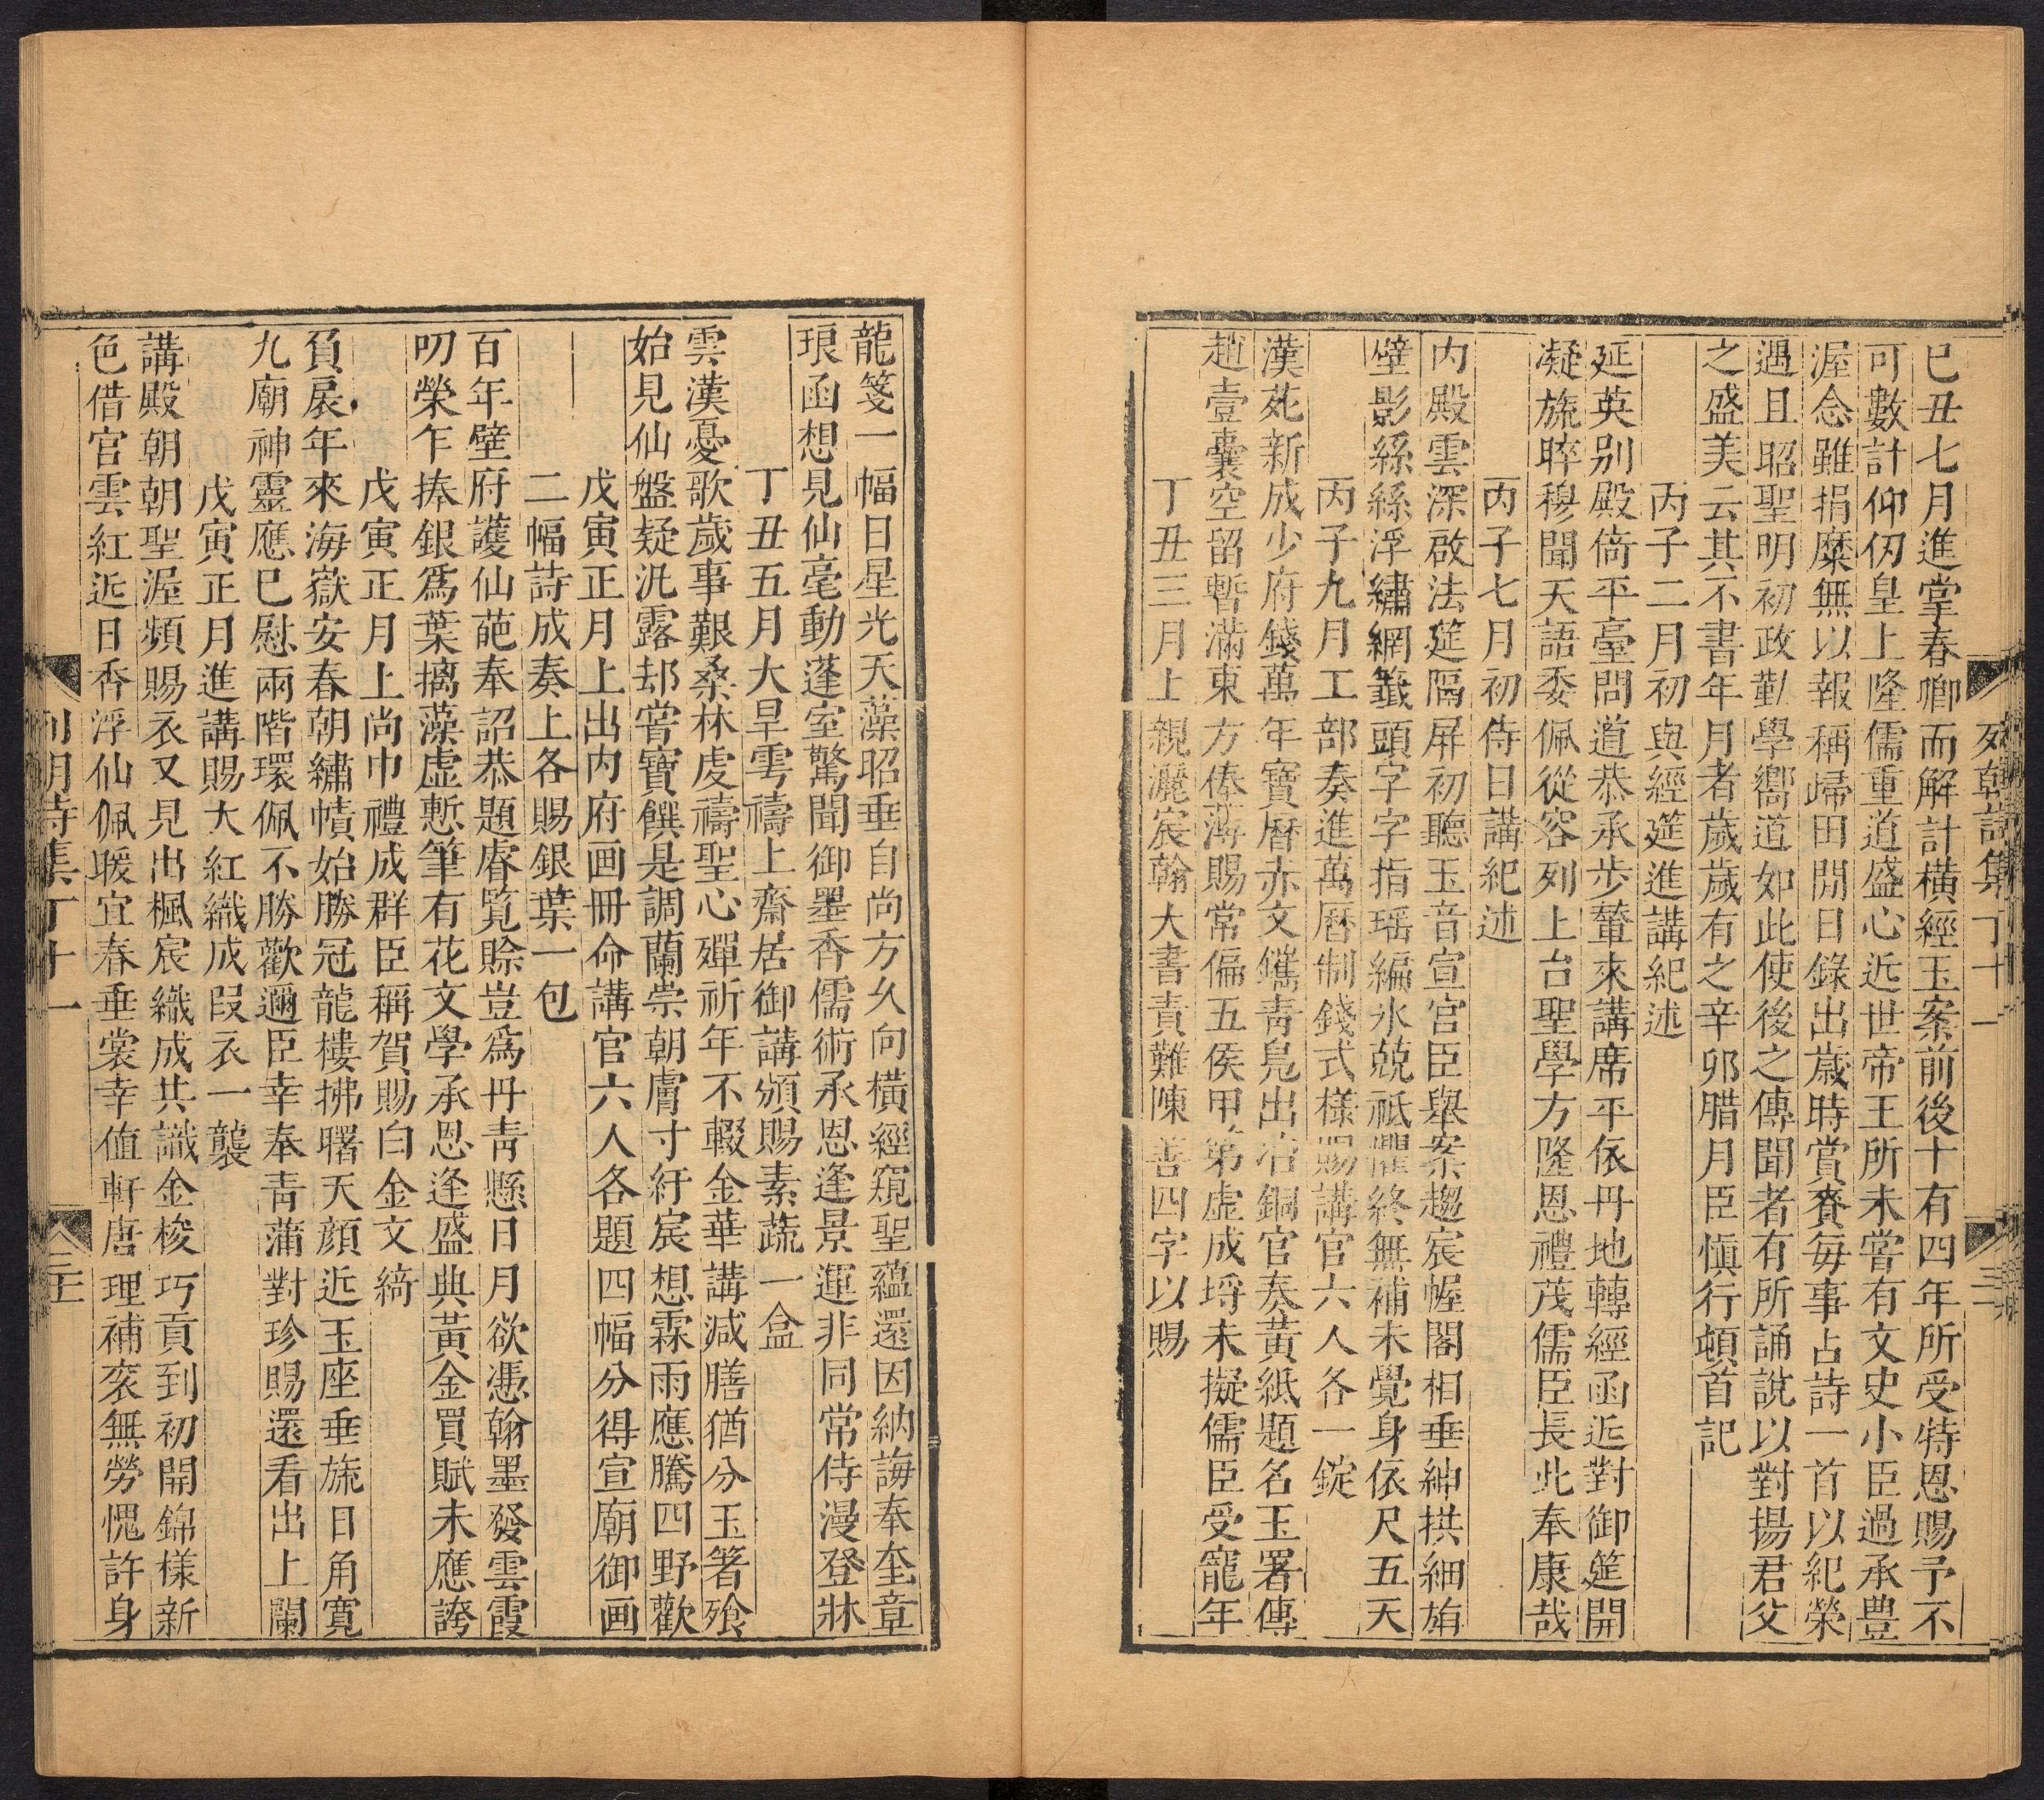 列朝詩集 丁十一 三
巳丑七月進掌春卿而解計橫經玉案前後十有四年所受特恩賜予不
可數計仰仭皇上隆儒重道盛心近世帝王所未嘗有文史小臣過承豊
渥念雖捐糜無以報稱歸田閒日錄出歲時賞賚每事占詩一首以紀榮
遇且昭聖明初政勤學嚮道如此使後之傳聞者有所誦說以對揚君父
之盛美云其不書年月者歲歲有之辛卯腊月臣慎行頓首記
丙子二月初與經筵進講紀述
延英别殿倚平臺問道恭承步輦來講席平依丹地轉經函近對御筵開
凝旒睟穆聞天語委佩從容列上台聖學方隆恩禮茂儒臣長此奉康哉
丙子七月初侍日講紀述
内殿雲深啟法筵隔屏初聽玉音宣官臣舉案趨宸幄閣相垂紳拱細旃
壁影絲絲浮繡網籤頭字字指瑶編氷兢祗懼終無補未覺身依尺五天
丙子九月工部奏進萬曆制錢式樣賜講官六人各一錠
漢苑新成少府錢萬年寶曆赤文鐫青鳧出冶銅官奏黃紙題名玉署傳
趙壹囊空留暫滿東方俸薄賜常偏五侯甲第虛成埒未擬儒臣受寵年
丁丑三月上親灑宸翰大書責難陳善四字以賜
龍箋一幅日星光天藻昭垂自尚方久向橫經窺聖蘊還因納誨奉奎章
琅函想見仙毫動蓬室驚聞御墨香儒術承恩逢景運非同常侍漫登牀
丁丑五月大旱雩禱上齋居御講頒賜素蔬一盒
雲漢憂歌歲事艱桑林虔禱聖心殫祈年不輟金華講減膳猶分玉箸飱
始見仙盤疑汎露却嘗寶饌是調蘭崇朝膚寸紆宸想霖雨應騰四野歡
戊寅正月上出内府画冊命講官六人各題四幅分得宣廟御画
二幅詩成奏上各賜銀葉一包
百年壁府護仙葩奉詔恭題睿覧賒豈爲丹青懸日月欲憑翰墨發雲霞
叨榮乍捧銀爲葉摛藻虛慙筆有花文學承恩逢盛典黃金買賦未應誇
戊寅正月上尚巾禮成群臣稱賀賜白金文綺
負扆年來海嶽安春朝繡幘始勝冠龍樓拂曙天顔近玉座垂旒日角寛
九廟神靈應巳慰兩階環佩不勝歡邇臣幸奉青蒲對珍賜還看出上闌
戊寅正月進講賜大紅織成叚衣一襲
講殿朝朝聖渥頻賜衣又見出楓宸織成共識金梭巧貢到初開錦樣新
色借宮雲紅近日香浮仙佩暖宜春垂裳幸值軒唐理補衮無勞愧許身
列朝詩集 丁十一